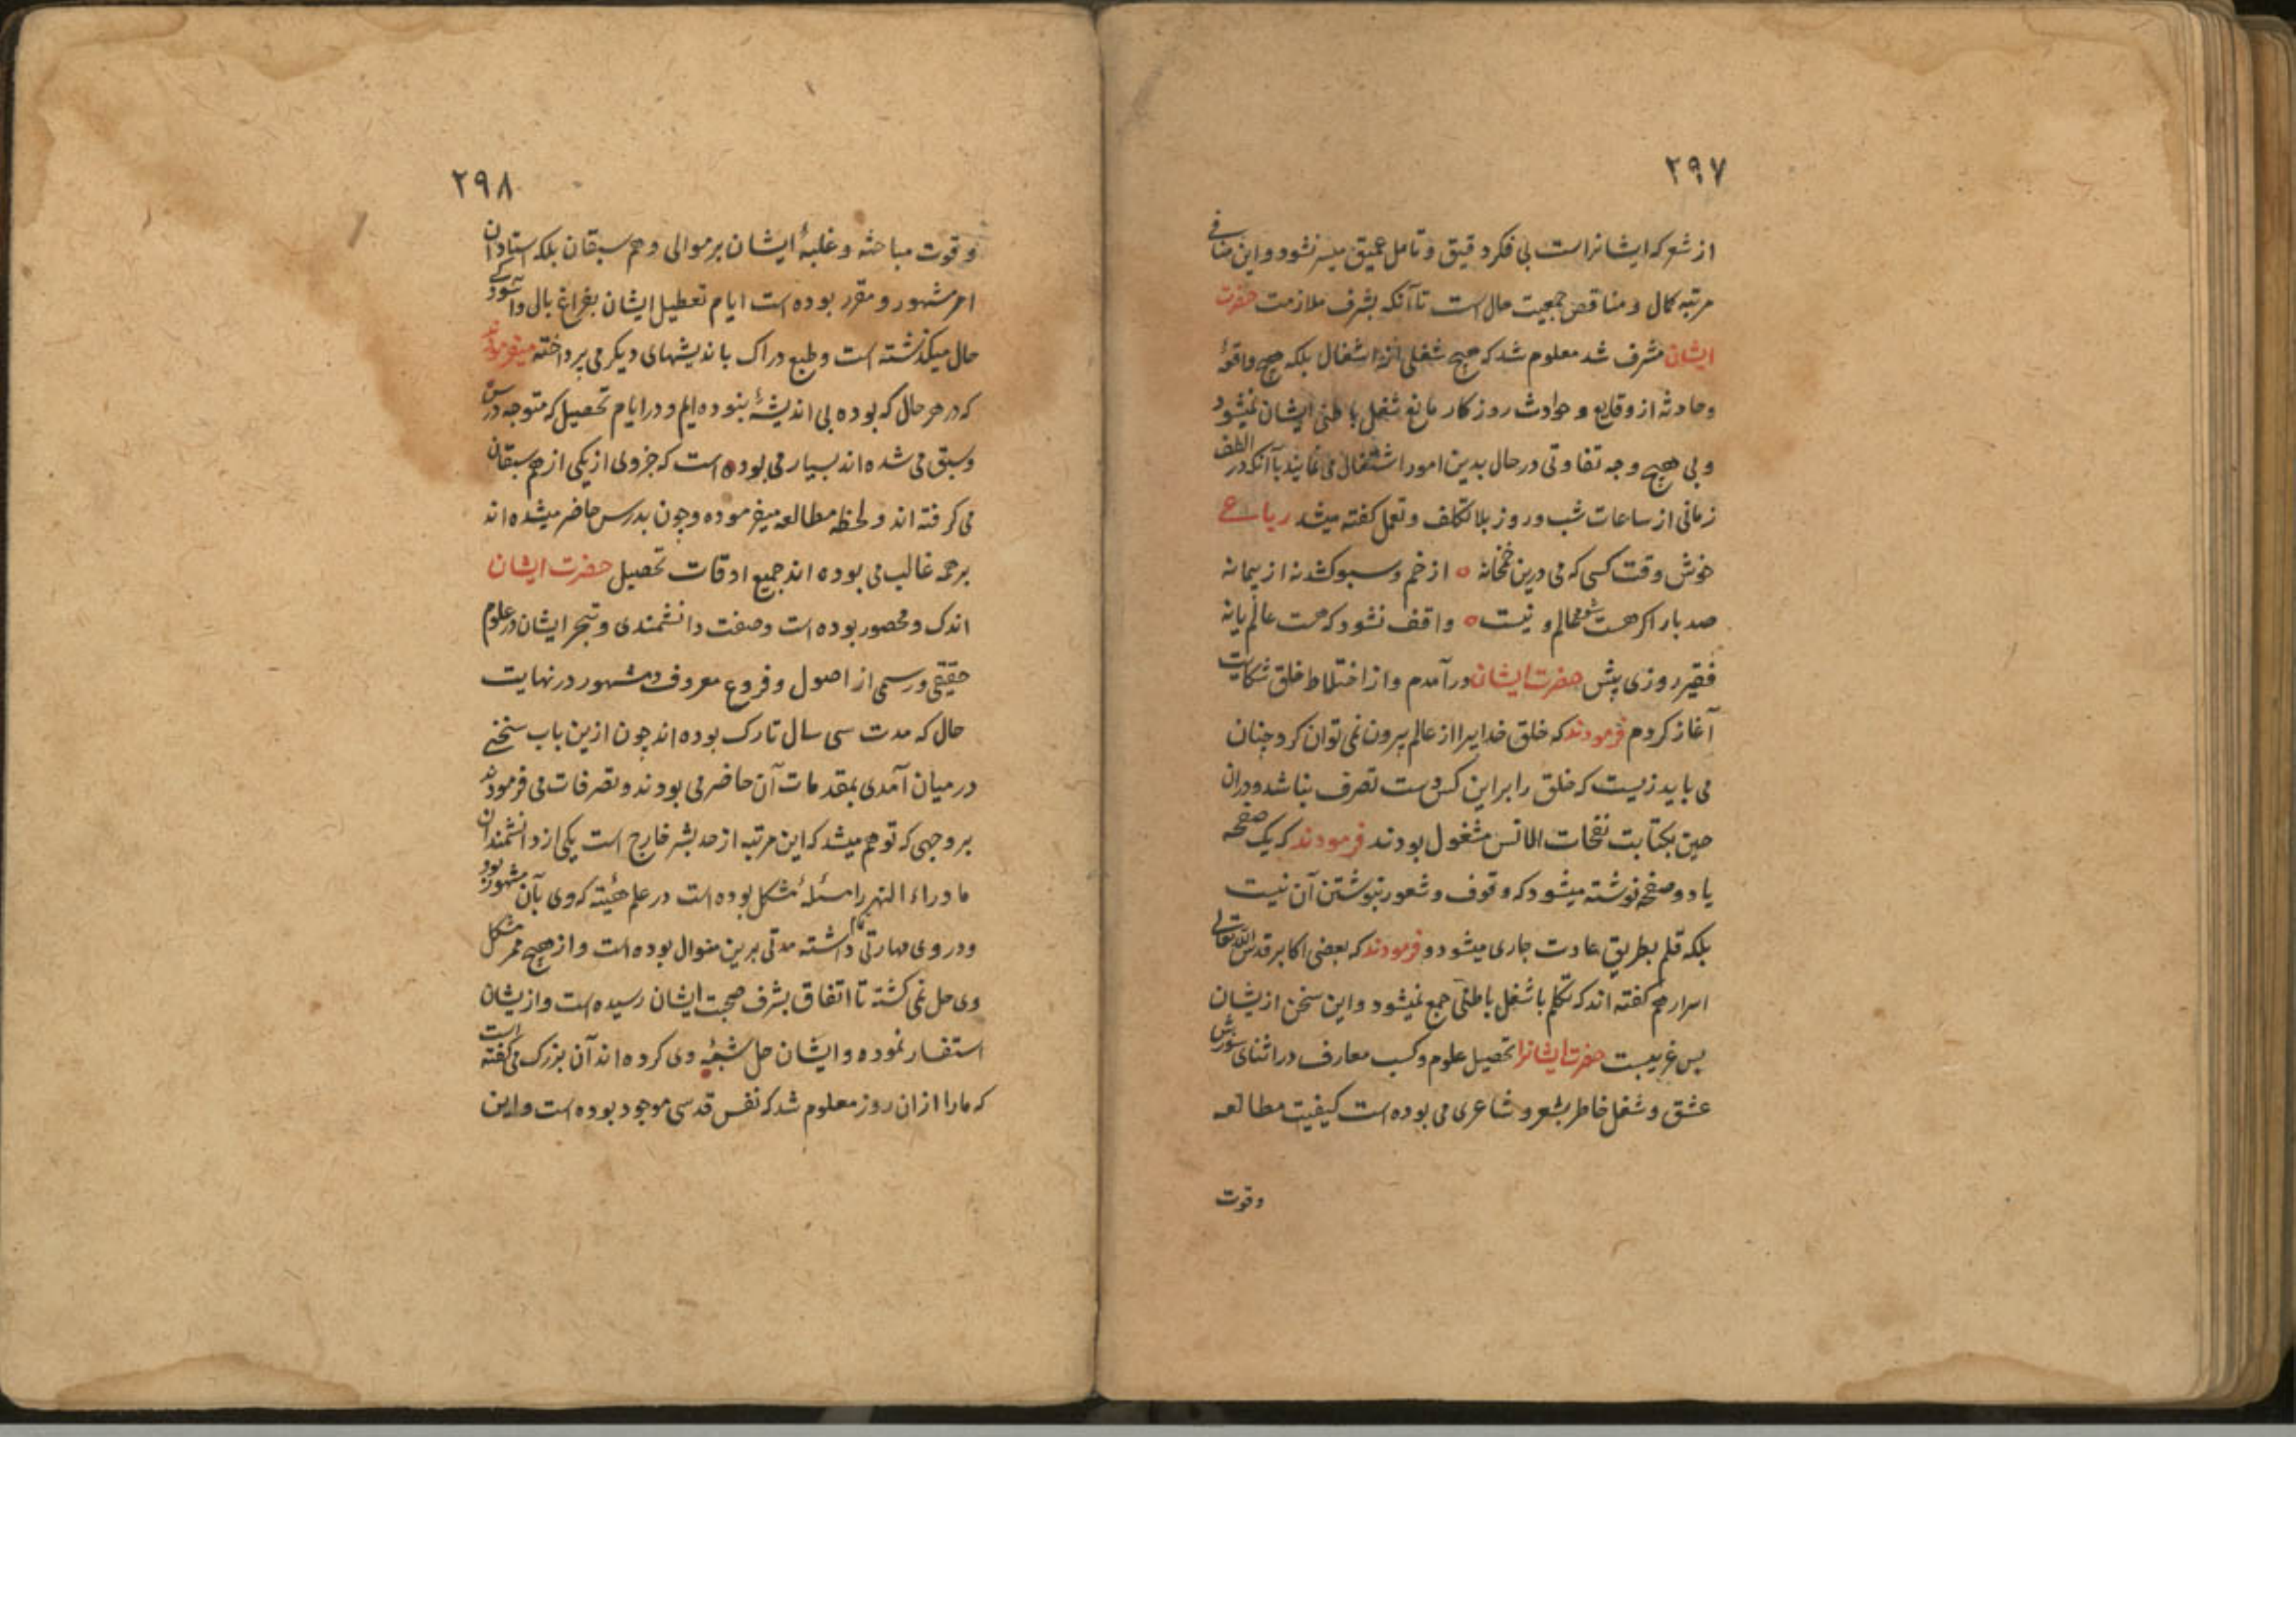 ۲۹۷
از شعر که ایشانراست بی فکر دقیق و تامل عمیق میسر نشود و این منافی
مرتبه کمال و مناقص جمعیت حال است تا آنکه بشرف ملازمت حضرت
ایشان مشرف شد معلوم شد که هیچ شغلی از اشغال بلکه هیچ واقعهٔ
و حادثه از وقایع و حوادث روزکار مانع شغل باطنی ایشان نمیشود
و بی هیچ وجه تفاوتی در حال بدین امور اشتغال می نمایند با آنکه در الطف
زمانی از ساعات شب و روز بلا تکلف و تعمل کفته میشد رباعی
خوش وقت کسی که می درین خمخانه ه از خم و سبو کشد نه از پیمانه
صد بار اکر هست شود عالم و نیست ه واقف نشود که هست عالم یا نه
فقیر روزی پیش حضرت ایشان درآمدم و از اختلاط خلق شکایت
آغاز کردم فرمودند که خلق خدایرا از عالم بیرون نمی توان کرد چنان
می باید زیست که خلق را بر این کس دست تصرف نباشد و دران
حین بکتابت نفحات الانس مشغول بودند فرمودند که یک صفحه
یا دو صفحه نوشته میشود که وقوف و شعور بنوشتن آن نیست
بلکه قلم بطریق عادت جاری میشود و فرمودند که بعضی اکابر قدس الله تعالی
اسرارهم کفته اند که تکلم با شغل باطنی جمع نمیشود و این سخن ازیشان
بس غریبست حضرت ایشانرا تحصیل علوم و کسب معارف در اثنای شورش
عشق و شغل خاطر بشعر و شاعری می بوده است کیفیت مطالعه
وقوت
۲۹۸
و قوت مباحثه و غلبهٔ ایشان بر موالی و هم سبقان بلکه استادان
امر مشهور و مقرر بوده است ایام تعطیل ایشان بفراغ بال و آسودکی
حال میکذشته است و طبع دراک باندیشهای دیکر می پرداخته میفرمودند
که در هر حال که بوده بی اندیشهٔ نبوده ایم و در ایام تحصیل که متوجه درس
و سبق می شده اند بسیار می بوده است که جزوی از یکی از هم سبقان
می کرفته اند و لحظه مطالعه میفرموده و چون بدرس حاضر میشده اند
بر همه غالب می بوده اند جمیع اوقات تحصیل حضرت ایشان
اندک و محصور بوده است و صفت دانشمندی و تبحر ایشان در علوم
حقیقی و رسمی از اصول و فروع معروف و مشهور در نهایت
حال که مدت سی سال تارک بوده اند چون ازین باب سخنی
در میان آمدی بمقدمات آن حاضر می بودند و تصرفات می فرمودند
بر وجهی که توهم میشد که این مرتبه از حد بشر خارج است یکی از دانشمندان
ماوراء النهر را مسئلهٔ مشکل بوده است در علم هیئة که وی بآن مشهور بود
و در وی مهارتی تمام داشته مدتی برین منوال بوده است و از هیچ ممر مشکل
وی حل نمی کشته تا اتفاق بشرف صحبت ایشان رسیده است و ازیشان
استفسار نموده و ایشان حل شبههٔ وی کرده اند آن بزرک می کفته است
که ما را ازان روز معلوم شد که نفس قدسی موجود بوده است و این